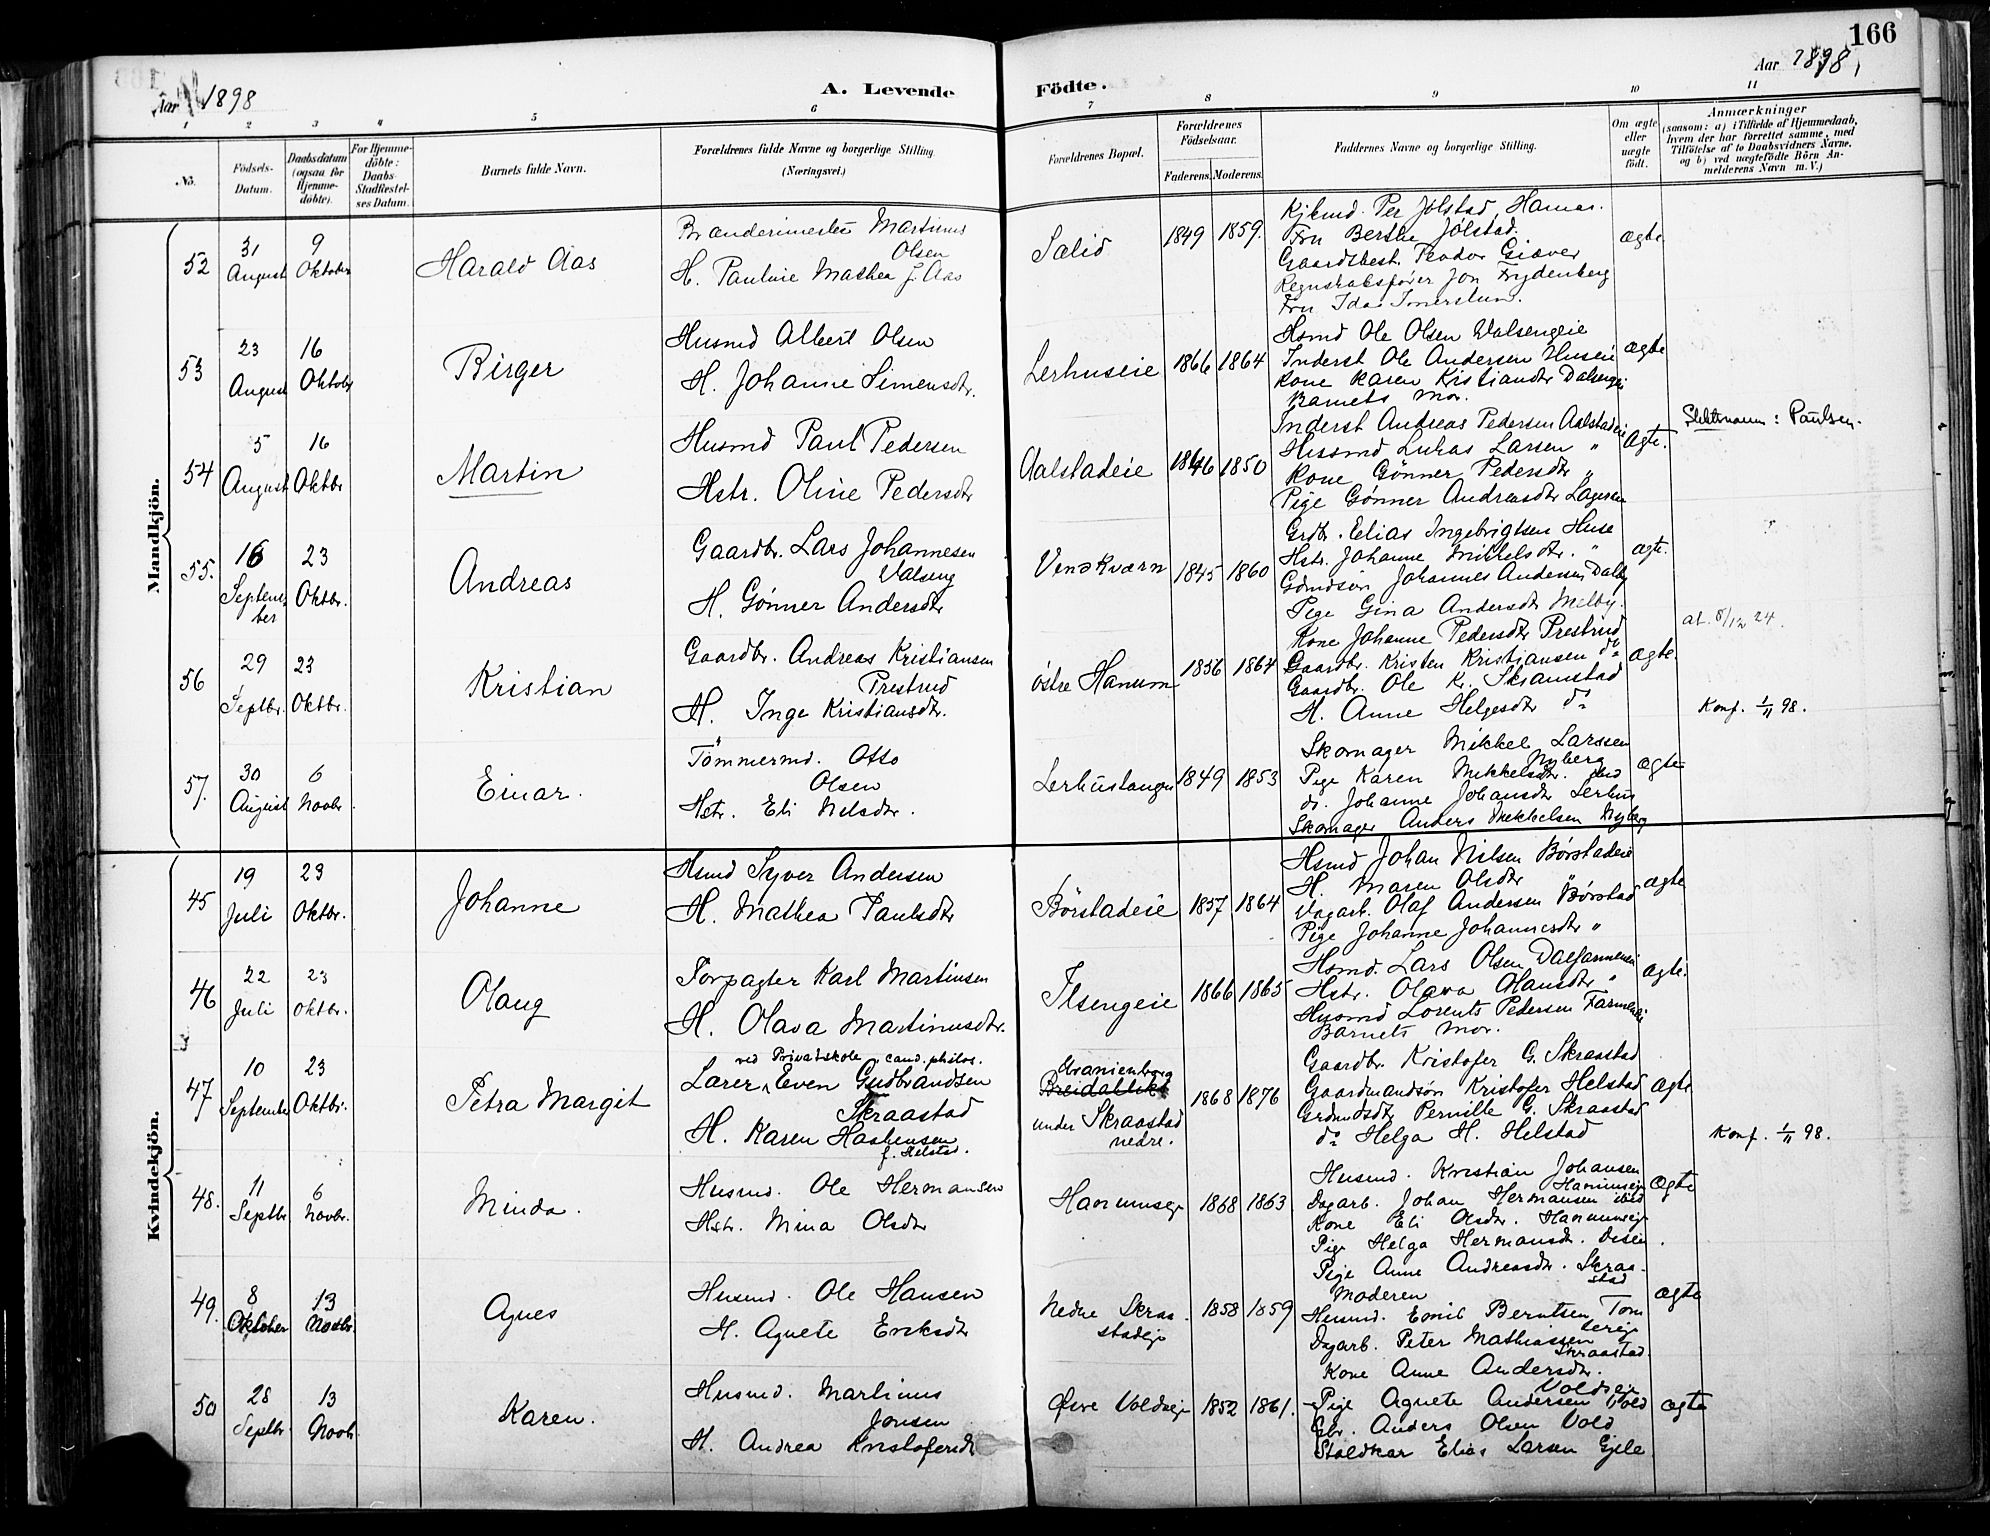 166
Aar 1898
A. Levende Födte.
Aar 1898,
1 2 3 4 5 6 7 8 9 10 11
No.
Födsels-Datum.
Daabsdatum (ogsaa for Hjemme-döbte).
For Hjemme-döbte: Daabs-Stadfæstel-ses Datum.
Barnets fulde Navn.
Forældrenes fulde Navne og borgerlige Stilling. (Næringsvei.)
Forældrenes Bopæl.
Forældrenes Födselsaar.
Faderens. Moderens.
Faddernes Navne og borgerlige Stilling.
Om ægte eller uægte födt.
Anmærkninger (saasom: a) i Tilfælde af Hjemmedaab, hvem der har forrettet samme, med Tilföielse af to Daabsvidners Navne, og b) ved uægtefödte Börn An-melderens Navn m. V.)
Mandkjön.
52 31 August 9 Oktober Harald Aas
Brænderimester Martinus Olsen
H. Pauline Mathea f. Aas
Sælid 1849 1859.
Kjbmd. Per Jølstad, Hamar.
Fru Berthe Jølstad.
Gaardsbest. Peador Giæver
Regnskabsfører Jon Frydenberg
Fru Ida
ægte
53 23 August 16 Oktober Birger
Husmd Albert Olsen
H. Johanne Simensdtr.
Lerhuseie 1866 1864
Hsmd Ole Olsen Valsengeie
Inderst Ole Andersen Huseie
Kone Karen Kristiansdtr Dalsengei
Barnets Mor.
ægte
54 5 August 16 Oktbr Martin
Husmd Paul Pedersen
Hstr. Oline Pedersdtr
Aalstadeie 1846 1850
Inderst Andreas Pedersen Aalstadeie
Husmd Lukas Larsen "
Kone Gønner Pedersdtr "
Pige Gønner Andreasdtr
ægte.
Slektsnavn: Paulsen.
55. 16 September 23 Oktbr. Andreas
Gaardbr. Lars Johannesen Valseng
H. Gønner Andersdtr
Venskværn 1845 1860
Grdbr. Elias Ingebrigtsen Huse
Hstr. Johanne Mikkelsdtr. "
Gdmdsøn Johannes Andersen Dalby
Pige Gina Andersdtr Melby.
ægte.
at. 8/12 24.
56 29 Septbr. 23 Oktbr. Kristian
Gaardbr. Andreas Kristiansen Prestrud
H. Inge Kristiansdtr.
østre Hanum 1856 1864
Kone Johanne Pedersdtr Prestrud
Gaardbr. Kristen Kristiansen do
Gaardbr. Ole Kr. Skramstad
H. Anne Helgesdtr do
ægte.
Konf. 1/11 98.
57. 30 August 6 Novbr. Einar.
Tømmermd. Otto Olsen
Hstr. Eli Nilsdtr.
Lerhustangen 1849 1853
Skomager Mikkel Larssen Nyberg
Pige Karen Mikkelsdtr. ibid
do. Johanne Johansdtr Lerhus
Skomager Anders Mikkelsen Nyberg
ægte
Kvindekjön.
45 19 Juli 23 Oktbr. Johanne
Hsmd Syver Andersen
H. Mathea Paulsdtr
Børstadeie 1857 1864
Hsmd Johan Nilsen Børstadeie
H. Maren Olsdtr "
Dagarb. Olaf Andersen Børstad
Pige Johanne Johannesdtr "
ægte
46 22 Juli 23 Oktbr. Olaug
Forpagter Karl Martinsen
H. Olava Martinusdtr.
Ilsengeie 1866 1865
Hsmd. Lars Olsen Dalfarmenei
Hstr. Olava Olausdtr "
Husmd Lorents Pedersen Farmenei
Barnets Mor.
ægte.
47 10 September 23 Oktbr. Petra Margit
ved Privatskole, cand. philos.
Lærer Even Gudbrandsen Skraastad
H. Karen Haakensen f. Helstad.
Uranienborg
Breidablikk
under Skraastad nedre.
1868 1876
Gaardbr. Kristofer G. Skraastad
Gaardmandsøn Kristofer Helstad
Grdmdsdtr Pernille G. Skraastad
do Helga H. Helstad
ægte
Konf. 1/11 98.
48. 11 Septbr 6 Novbr. Minda.
Husmd. Ole Hermansen
Hstr. Mina Olsdtr
Hanumseje 1868 1863
Husmd. Kristian Johansen Hanumseje
Dagarb. Johan Hermansen ibid
Kone Eli Olsdtr. Hanumseje
Pige Helga Hermansdtr. Disen.
ægte
49. 8 Oktober 13 Novbr. Agnes
Husmd. Ole Hansen
H. Agnete Eriksdtr
Nedre Skraastadeje 1858 1859
Pige Anne Andreasdtr. Skraastad
Moderen
Husmd. Emil Berntsen Tomtereje
Dagarb. Peter Mathiassen Skraastad.
Kone Anne Andersdtr. Voldseje
ægte
50 28 Septbr. 13 Novbr Karen.
Husmd. Martinus Jonsen
H. Andrea Kristofersdtr
Øvre Voldseje 1852 1861.
Pige Agnete Andersen Vold
Gbr. Anders Olsen Vold
Staldkar Elias Larsen Gjile
ægte